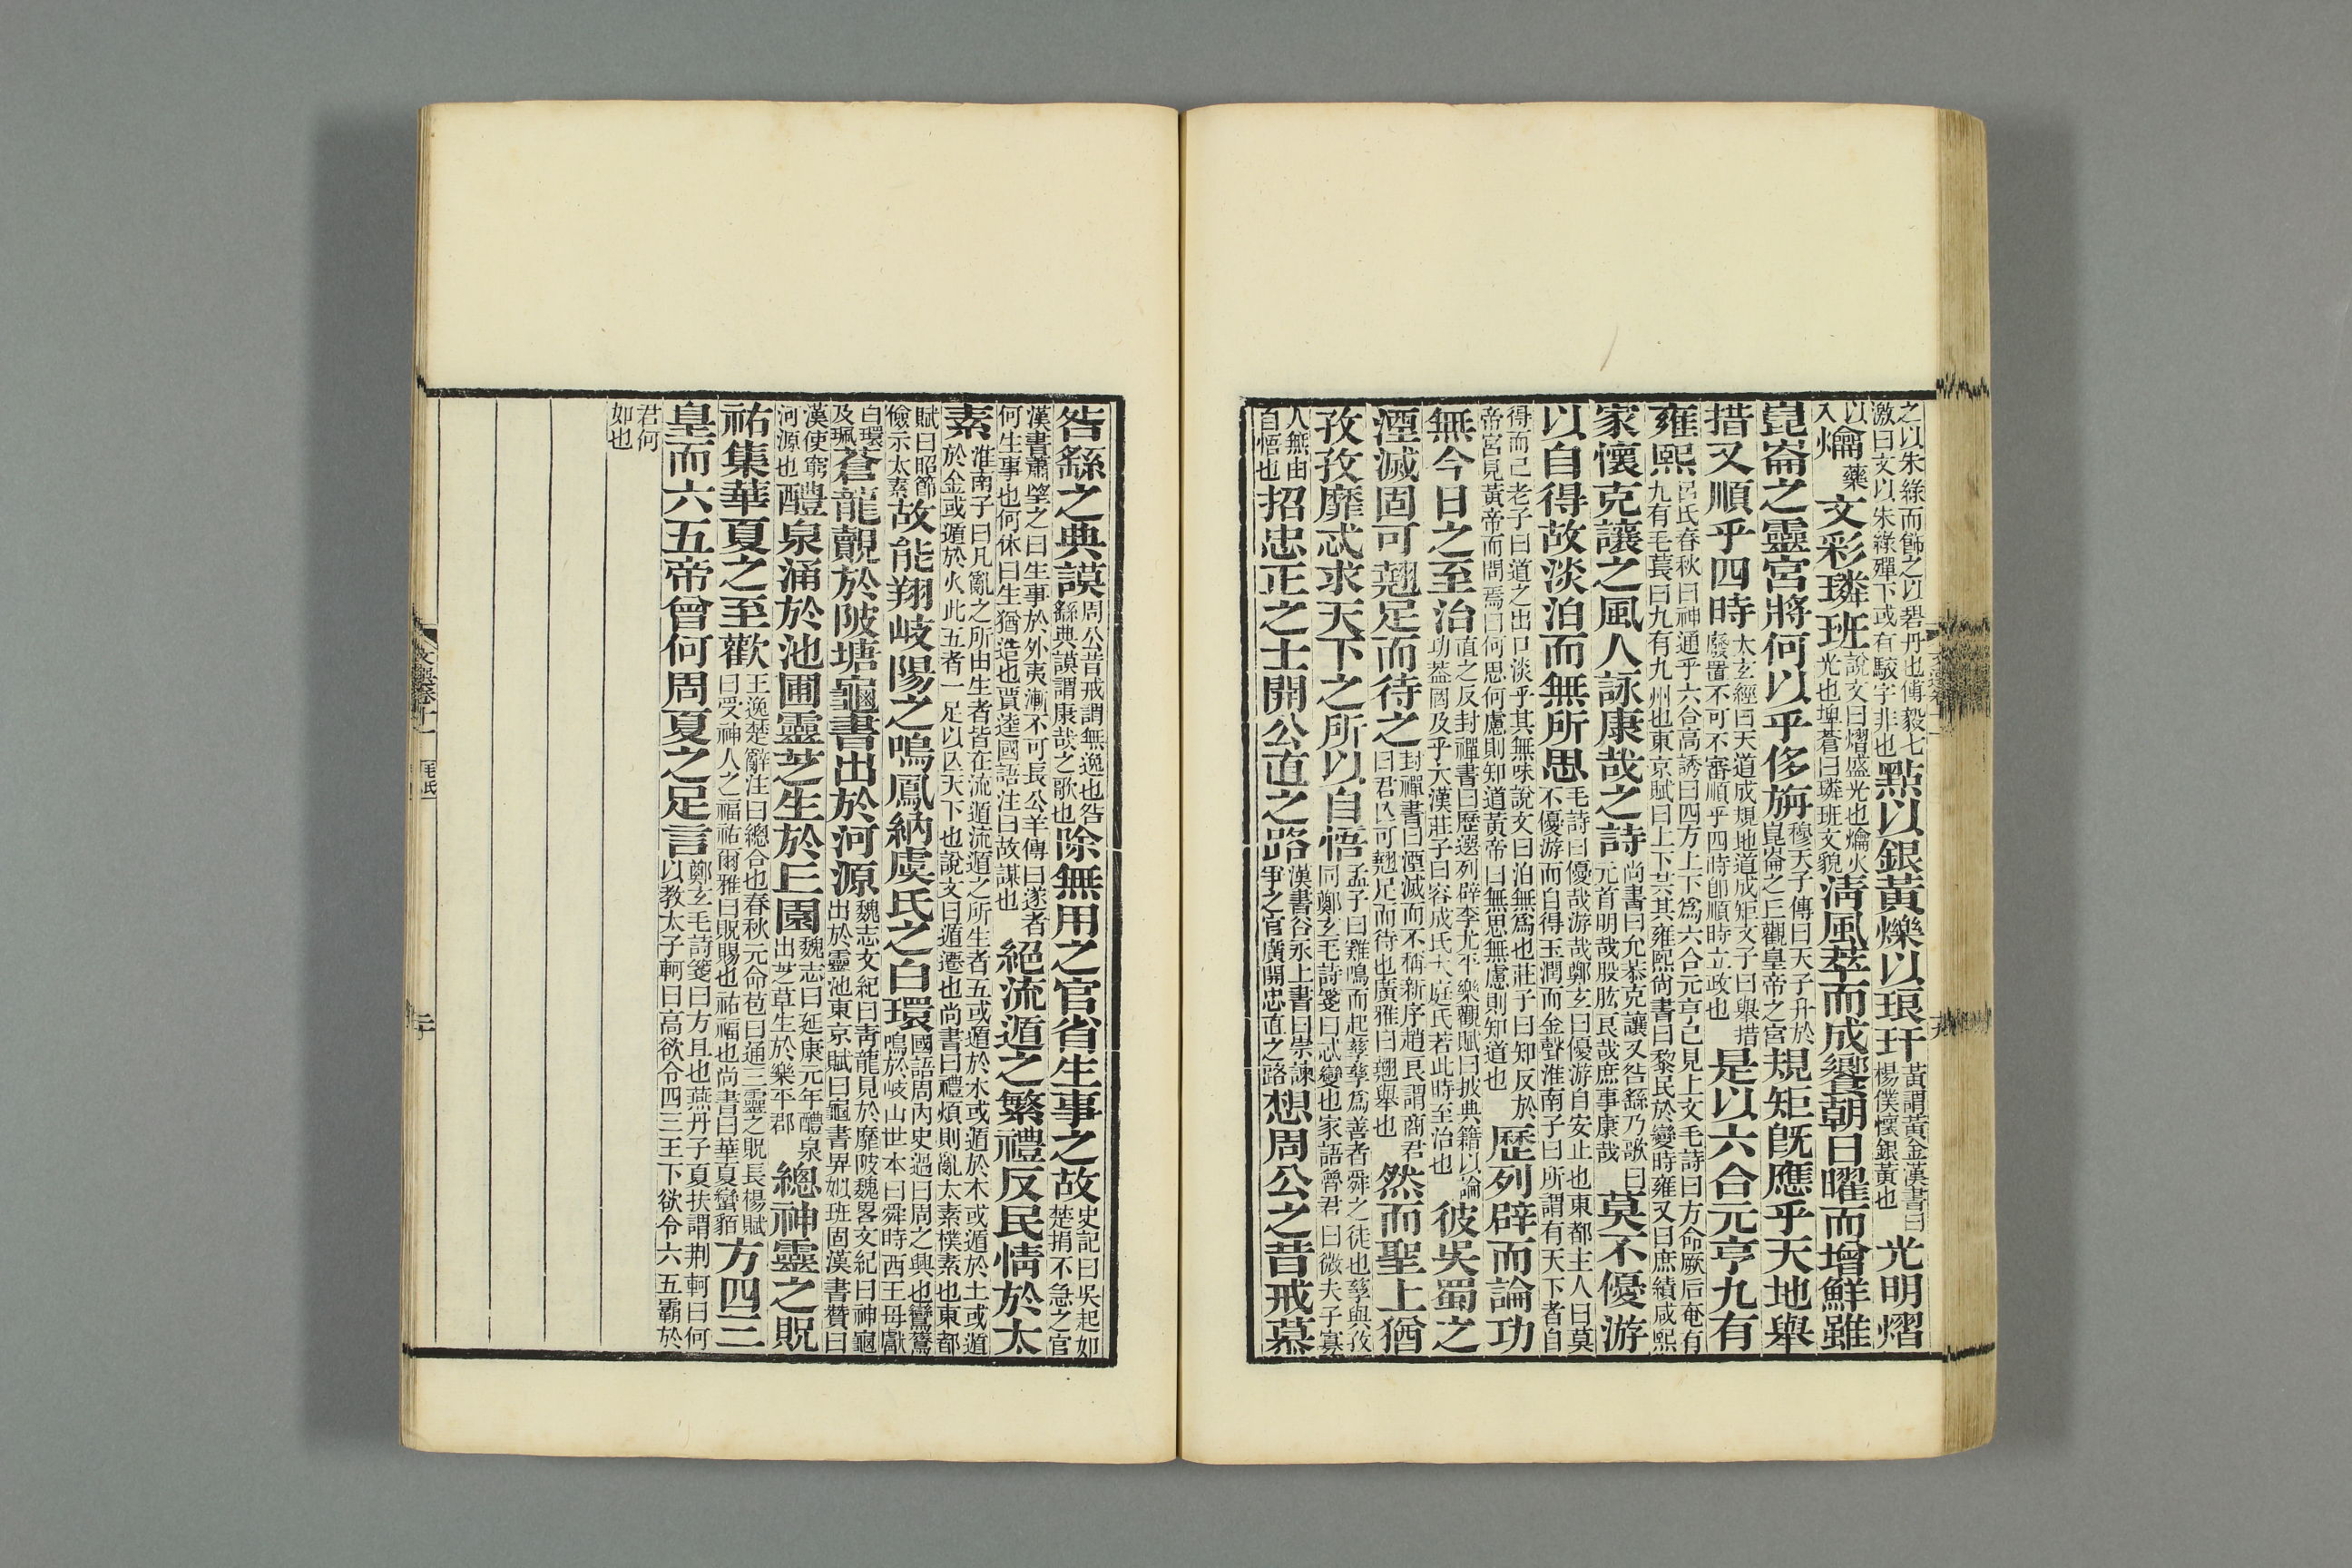 之以朱綠而飾之以碧丹也傅毅七
激曰文以朱綠殫下或有駮字非也點以銀黃爍以琅玕黃謂黃金漢書曰
楊僕懷銀黃也光明熠
以
入爚藥文彩璘班說文曰熠盛光也爚火
光也埤蒼曰璘班文貌清風萃而成響朝日曜而增鮮雖
崑崙之靈宮將何以乎侈旃穆天子傳曰天子升於
崑崙之丘觀皇帝之宮規矩旣應乎天地舉
措又順乎四時太玄經曰天道成規地道成矩文子曰舉措
廢置不可不審順乎四時卽順時立政也是以六合元亨九有
雍熙呂氏春秋曰神通乎六合高誘曰四方上下爲六合元亨已見上文毛詩曰方命厥后奄有
九有毛萇曰九有九州也東京賦曰上下共其雍熙尚書曰黎民於變時雍又曰庶績咸熙
家懷克讓之風人詠康哉之詩尚書曰允恭克讓又咎繇乃歌曰
元首明哉股肱良哉庶事康哉莫不優游
以自得故淡泊而無所思毛詩曰優哉游哉鄭玄曰優游自安止也東都主人曰莫
不優游而自得玉潤而金聲淮南子曰所謂有天下者自
得而已老子曰道之出口淡乎其無味說文曰泊無爲也莊子曰知反於
帝宮見黃帝而問焉曰何思何慮則知道黃帝曰無思無慮則知道也歷列辟而論功
無今日之至治直之反封禪書曰歷選列辟李尤平樂觀賦曰披典籍以論
功蓋罔及乎大漢莊子曰容成氏大庭氏若此時至治也彼吳蜀之
湮滅固可翹足而待之封禪書曰湮滅而不稱新序趙良謂商君
曰君亾可翹足而待也廣雅曰翹舉也然而聖上猶
孜孜靡忒求天下之所以自悟孟子曰雞鳴而起孳孳爲善者舜之徒也孳與孜
同鄭玄毛詩箋曰忒變也家語齊君曰微夫子寡
人無由
自悟也招忠正之士開公直之路漢書谷永上書曰崇諫
爭之官廣開忠直之路想周公之昔戒慕
咎繇之典謨周公昔戒謂無逸也咎
繇典謨謂康哉之歌也除無用之官省生事之故史記曰吳起如
楚捐不急之官
漢書蕭望之曰生事於外夷漸不可長公羊傳曰遂者
何生事也何休曰生猶造也賈逵國語注曰故謀也絕流遁之繁禮反民情於太
素淮南子曰凡亂之所由生者皆在流遁流遁之所生者五或遁於水或遁於木或遁於土或遁
於金或遁於火此五者一足以亾天下也說文曰遁遷也尚書曰禮煩則亂太素樸素也東都
賦曰昭節
儉示太素故能翔岐陽之鳴鳳納虞氏之白環國語周內史過曰周之興也鸑鷟
鳴於岐山世本曰舜時西王母獻
白環
及珮蒼龍覿於陂塘龜書出於河源魏志文紀曰靑龍見於靡陂魏畧文紀曰神龜
出於靈池東京賦曰龜書畀姒班固漢書贊曰
漢使窮
河源也醴泉涌於池圃靈芝生於丘園魏志曰延康元年醴泉
出芝草生於樂平郡總神靈之貺
祐集華夏之至歡王逸楚辭注曰總合也春秋元命苞曰通三靈之貺長楊賦
曰受神人之福祐爾雅曰貺賜也祐福也尚書曰華夏蠻貊方四三
皇而六五帝曾何周夏之足言鄭玄毛詩箋曰方且也燕丹子夏扶謂荆軻曰何
以教太子軻曰高欲令四三王下欲令六五霸於
君何
如也
文選卷十一
毛氏
二十